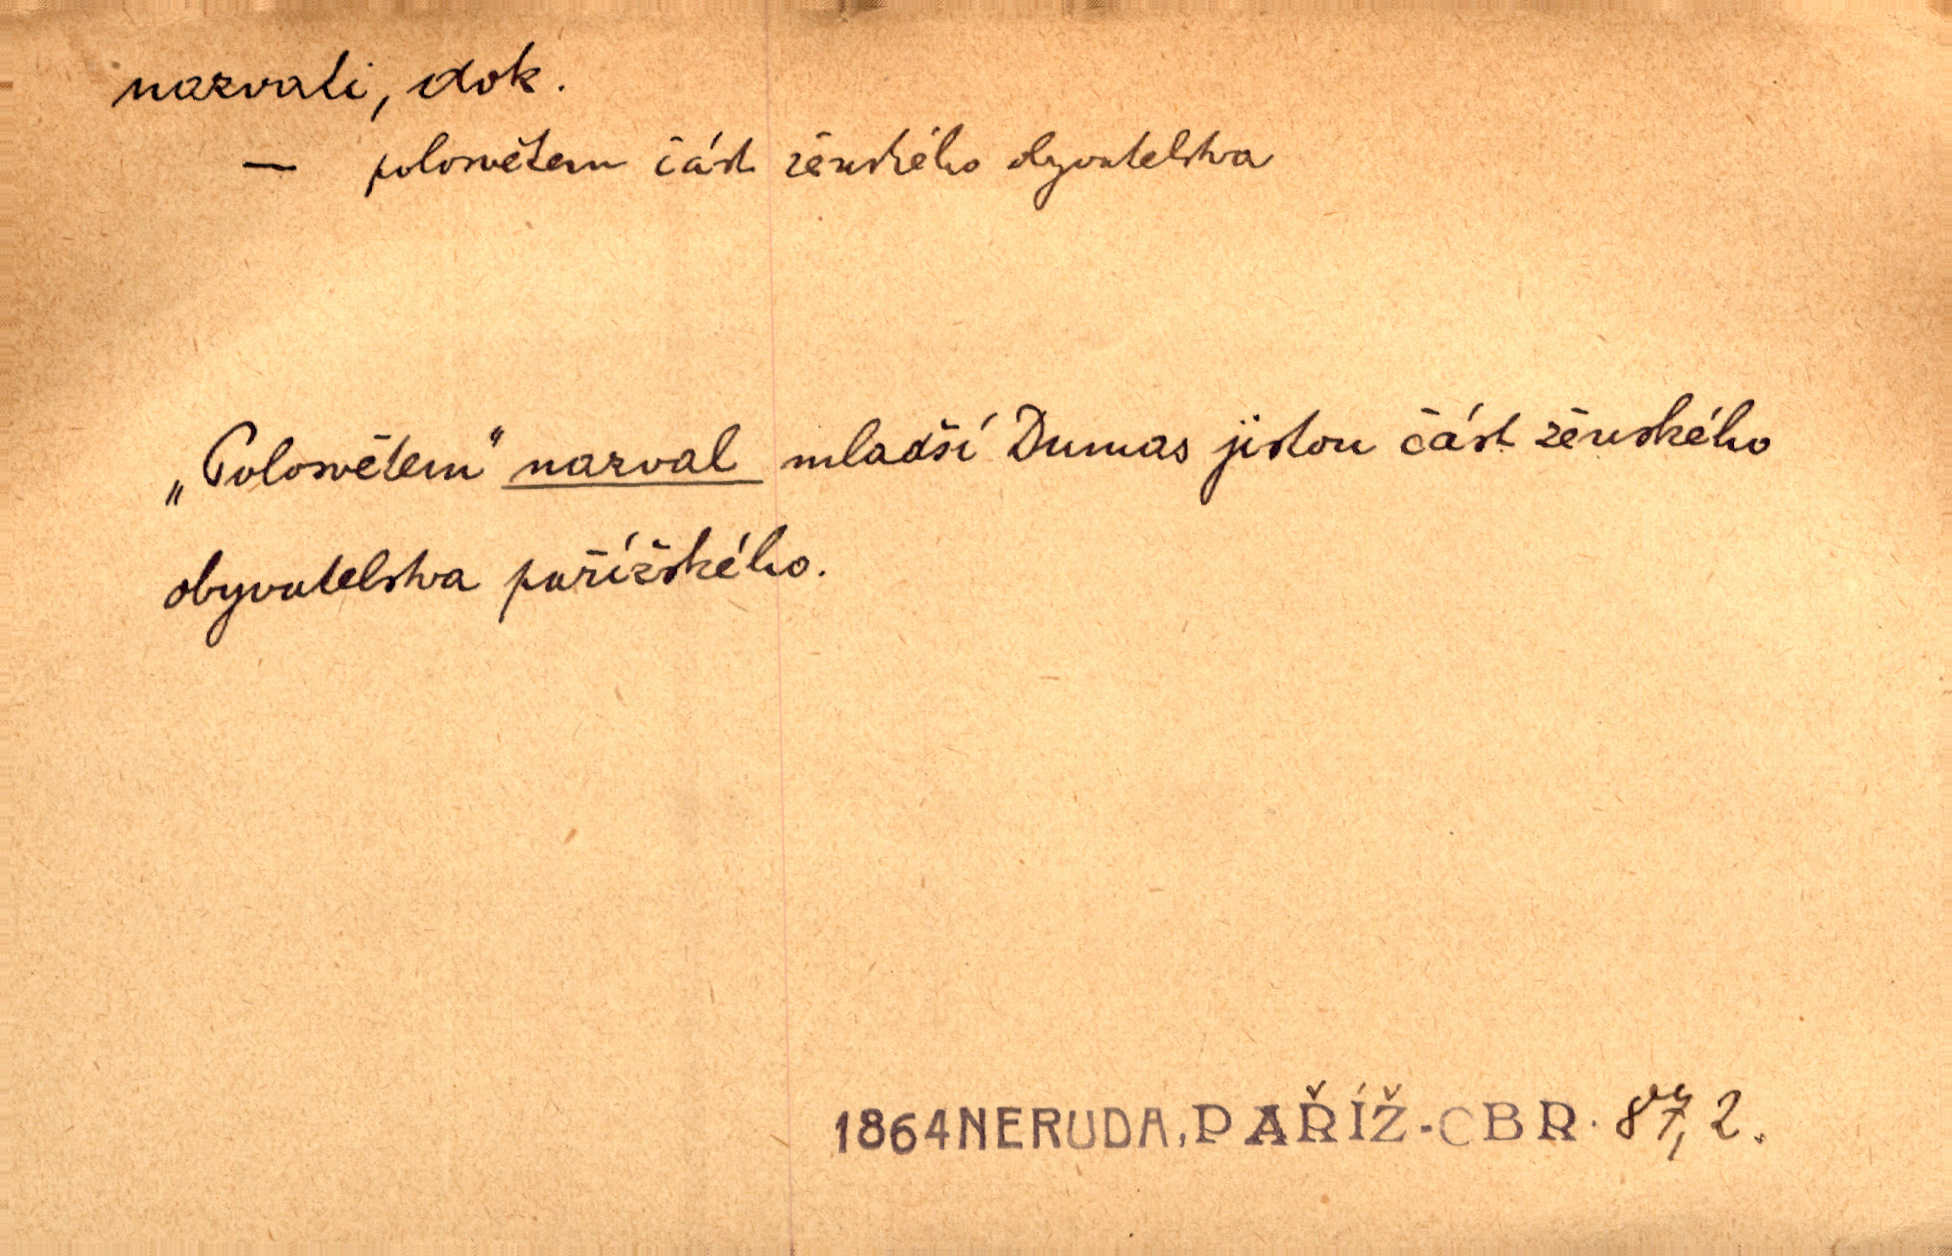 nazvati, dok.
— polosvětem část ženského obyvatelstva
„Polosvětem“ nazval mladší Dumas jistou část ženského
obyvatelstva pařížského.
1864 NERUDA, PAŘÍŽ - CBR. 87, 2.